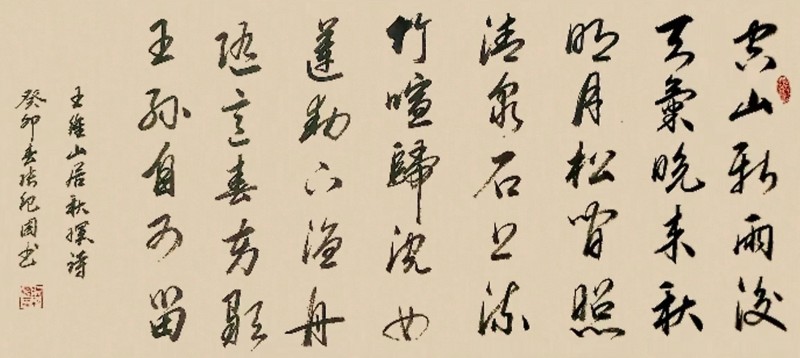 空山新雨後
天氣晚來秋
明月松間照
清泉石上流
竹喧歸浣女
蓮動下漁舟
隨意春芳歇
王孫自可留
王維山居秋暝詩
癸卯春张纪国书